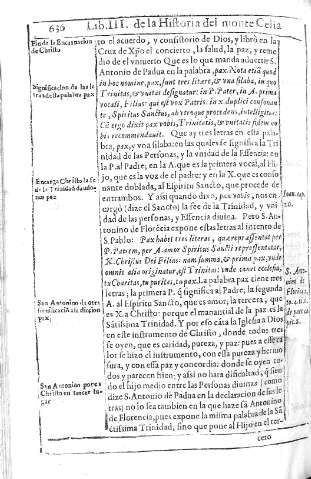 636 Lib. III. de la Historia del monte Celia
to el acuerdo, y consistorio de Dios, y librò en la
Cruz de Xpo el concierto, la salud, la paz, y reme
dio de el vniuerso Que es lo que manda aduertir S.
Antonio de Padua en la palabra, pax. Nota etiã quòd
in hoc nomine, pax, sunt tres literæ, & vna silaba, in quo
Trinitas, & vnitas designatur: in P. Pater, in A. prima
vocali, Filius: qui est vox Patris. in x duplici consonan
te, Spiritus Sanctus, ab vtroque procedens, intelligitur:
Cũ ergo dixit pax vobis, Trinitatis, & vnitatis fidem no
bis recommendauit. Que ay tres letras en esta pala-
bra, pax, y vna silaba: en las quales se significa la Tri
nidad de las Personas, y la vnidad de la Essencia: en
la P. al Padre; en la A. que es la primera vocal, al Hi
jo, que es la voz de el padre; y en la X. que es conso
nante doblada, al Espiritu Sancto, que procede de
entrambos. Y assi quando dixo, pax vobis, nos en
cargò (dize el Sancto) la fee de la Trinidad, y vni
dad de las personas, y Essencia diuina. Pero S. An-
tonio de Florécia expone estas letras al intento de
S. Pablo: Pax habet tres literas, qua repræsentat per
P. Patrem, per A. amor Spiritus Sancti repræsentatur,
X. Christus Dei Filius: nam summa, & prima pax, vnde
omnis alia originatur, est Trinitas: vnde canit ecclesia,
tu Charitas, tu puritas, tu pax. La palabra pax tiene tres
letras; la primera P. q significa al Padre; la segunda
A. al Espiritu Sancto, que es amor; la tercera, que
es X. a Christo: porque el manantial de la paz es la
Sãtissima Trinidad. Y por eso cãta la Iglesia a Dios
en este instrumento de Christo, donde todos tres
se oyen, que es caridad, pureza, y paz: pues a esse ca
lor se hizo el instrumento, con essa pureza y hermo
sura, y con essa paz y concordia: donde se oyen to-
dos y parecen bien; y assi no hara dificultad, q siem
do el hijo medio entre las Personas diuinas (como
dize S. Antonio de Padua en la declaracion de las le
tras) no lo sea tambien en la que haze sã Antonino
de Florencia, pues expone la misma palabra de la Sã
ctissima Trinidad, sino que pone al Hijo en el ter-
cero
Fin de la Encarnacion
de Christo
Significacion de las le
tras desta palabra pax
Encarga Christo la fe
de la Trinidad dando
nos paz
San Antonino de otra
pax;
San Antonino pone a
Christo en tercer lu-
gar